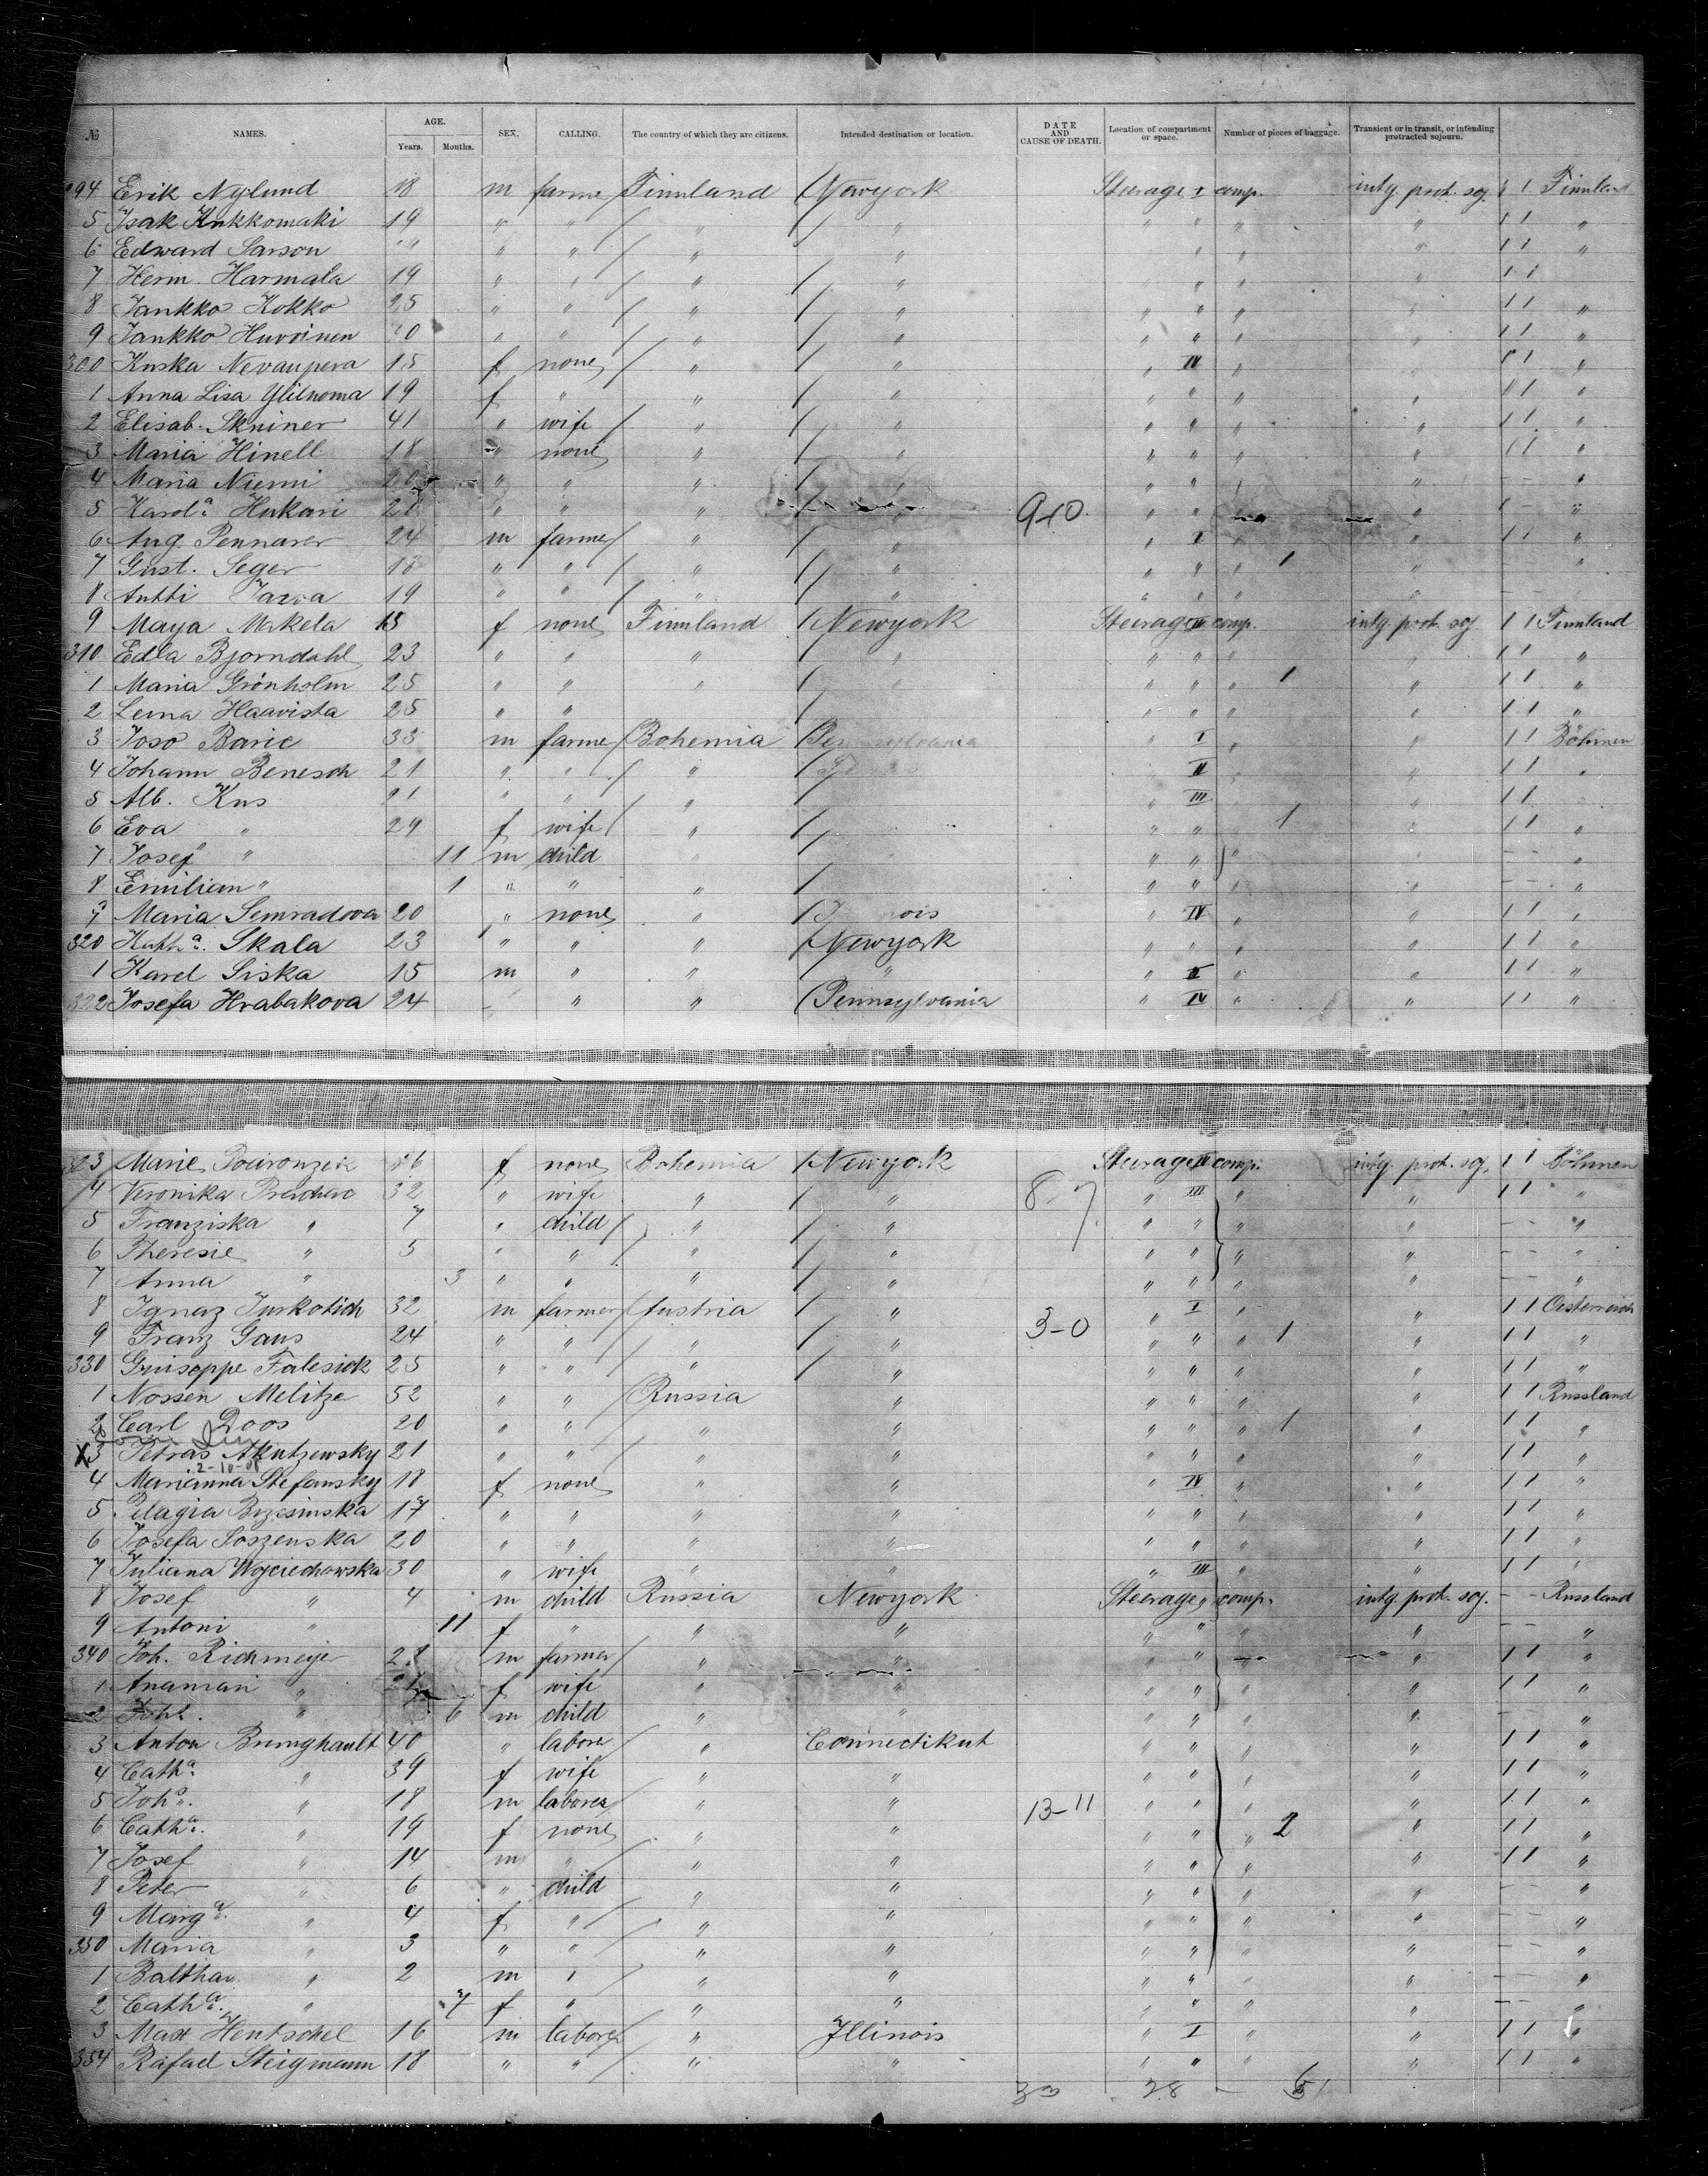 № NAMES. AGE. Years. Months. SEX. CALLING. The country of which they are citizens. Intended destination or location. DATE AND CAUSE OF DEATH. Location of compartment or space. Number of pieces of baggage. Transient or in transit, or intending protracted sojourn.
294 Erik Nylund 18 m farmer Finnland Newyork Steerage I comp. intg. prot. soj. 1 1 Finnland
5 Isak Kukkomaki 19 " " " " " " " " 1 1 "
6 Edward Larson " " " " " " " " 1 1 "
7 Herm. Harmala 19 " " " " " " " " 1 1
8 Jankko Kokko 25 " " " " " " " " 1 1 "
9 Jankko Huvoinen " " " " " " " " 1 1 "
300 Kuska Nevanpera 15 f none " " " IV " " 1 1 "
1 Anna Lisa Ylilnoma 19 f " " " " " " " 1 1 "
2 Elisab. Skniner 41 " wife " " " " " " 1 1 "
3 Maria Hinell 18 " none " " " " " " 1 1 "
4 Maria Niemi " " " " " " " " - - "
5 Karola Hukari " " " " 9-0 " " " " "
6 Aug Pennarer 24 m farmer " " " I " " 1 1 "
7 Gust. Seger " " " " " " " 1 " - - "
8 Antti Jarva 19 " " " " " " " " - - "
9 Maya Makela 15 f none Finnland Newyork Steerage IV comp. intg. prot. soj 1 1 Finnland
310 Edla Bjorndahl 23 " " " " " " " " 1 1 "
1 Maria Grönholm 25 " " " " " " " 1 " 1 1 "
2 Leina Haavista 25 " " " " " " 1 1 "
3 Joso Baric 33 m farmer Bohemia Pennsylvania " I " " 1 1 Böhmen
4 Johann Benesch 21 " " " " II " 1 1 "
5 Alb. Kus " " " " III " 1 1
6 Eva " 29 f wife " " " 1 " 1 1 "
7 Josef " 11 m child " " " " - - "
8 Emilian " 1 " " " " " " - - "
9 Maria Semradova 20 " none " " IV " " 1 1 "
320 Kath a. Skala 23 " " " Newyork " " " " 1 1 "
1 Karel Siska 15 m " " " " II " " 1 1 "
322 Josefa Hrabakova 24 " " Pennsylvania " IV " " 1 1 "
323 Marie f none Bohemia Newyork Steerage IV comp. intg. prot. soj. 1 1 Böhmen
4 Veronika 32 " wife " " 8-7 " III " " 1 1 "
5 Franziska " 7 " child " " " " " " - - "
6 Theresie " 5 " " " " " " " " - - "
7 Anna " 3 " " " " " " " " - - "
8 Ignaz Jurkotich 32 m farmer Austria " " I " " 1 1 Oesterreich
9 Franz Gaus 24 " " " " 3-0 " " " 1 " 1 1 "
330 Guiseppe Falesick 25 " " " " " " " " 1 1 "
1 Nossen Melitze 52 " " Russia " " " " " 1 1 Russland
2 Carl Roos 20 " " " " " " " 1 " 1 1 "
X3 Petras Akutzewsky 21 " " " " " " " " 1 1 "
2-10-01
4 Marianna Stefansky 18 f none " " " IV " " 1 1 "
5 Pelagia Brzesinska 17 " " " " " " " " 1 1 "
6 Josefa Soszenska 20 " " " " " " " " 1 1 "
7 Juliana Wojciechowska 30 " wife " " " III " " 1 1 "
8 Josef " 4 m child Russia Newyork Steerage " comp. intg. prot. soj. - - Russland
9 Antoni " 11 f " " " " " " " - - "
340 Joh. Richmeyer m farmer " " " " " " 1 1 "
1 Anamari " f wife " " " " " " 1 1 "
2 " 6 m child " " " " " " "
3 Anton Brunghault 40 " laborer " Connectikut " " " " 1 1 "
4 Cath a. " 39 f wife " " " " " " 1 1 "
5 Joh s. " 18 m laborer " " 13-11 " " " " 1 1 "
6 Cath a. " 19 f none " " " " " 2 " 1 1 "
7 Josef " 14 m " " " " " " " 1 1 "
8 Peter " 6 " child " " " " " " - - "
9 Marg a. " 4 f " " " " " " " - - "
350 Maria " 3 " " " " " " " " - - "
1 Balthas. " 2 m " " " " " " " - - "
2 Cath a. " 7 f " " " " " " " - - "
3 Max Hentschel 16 m laborer " Illinois " I " " 1 1 "
354 Rafael Steigmann 18 " " " " " " " " 1 1 "